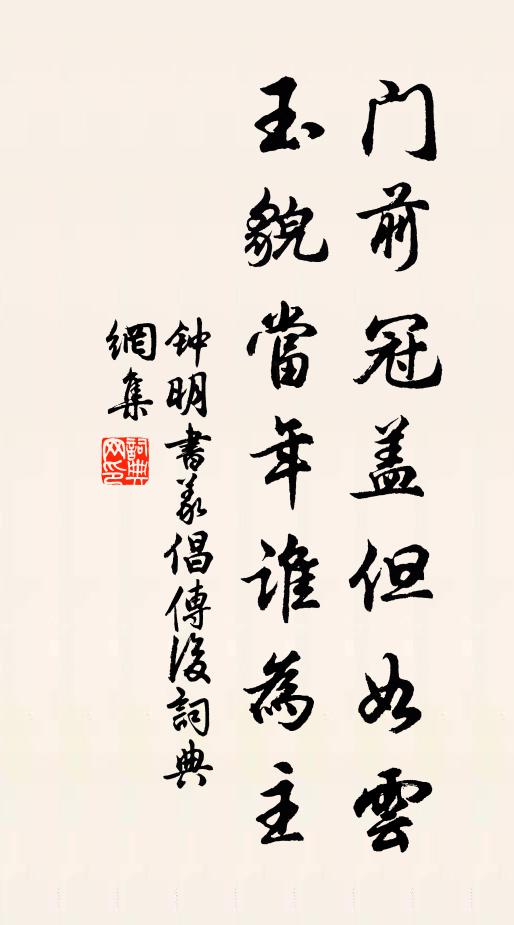 门前冠盖但如雲
玉貌當年誰為主
钟明書義倡傳後詞典
網集
詞典网印